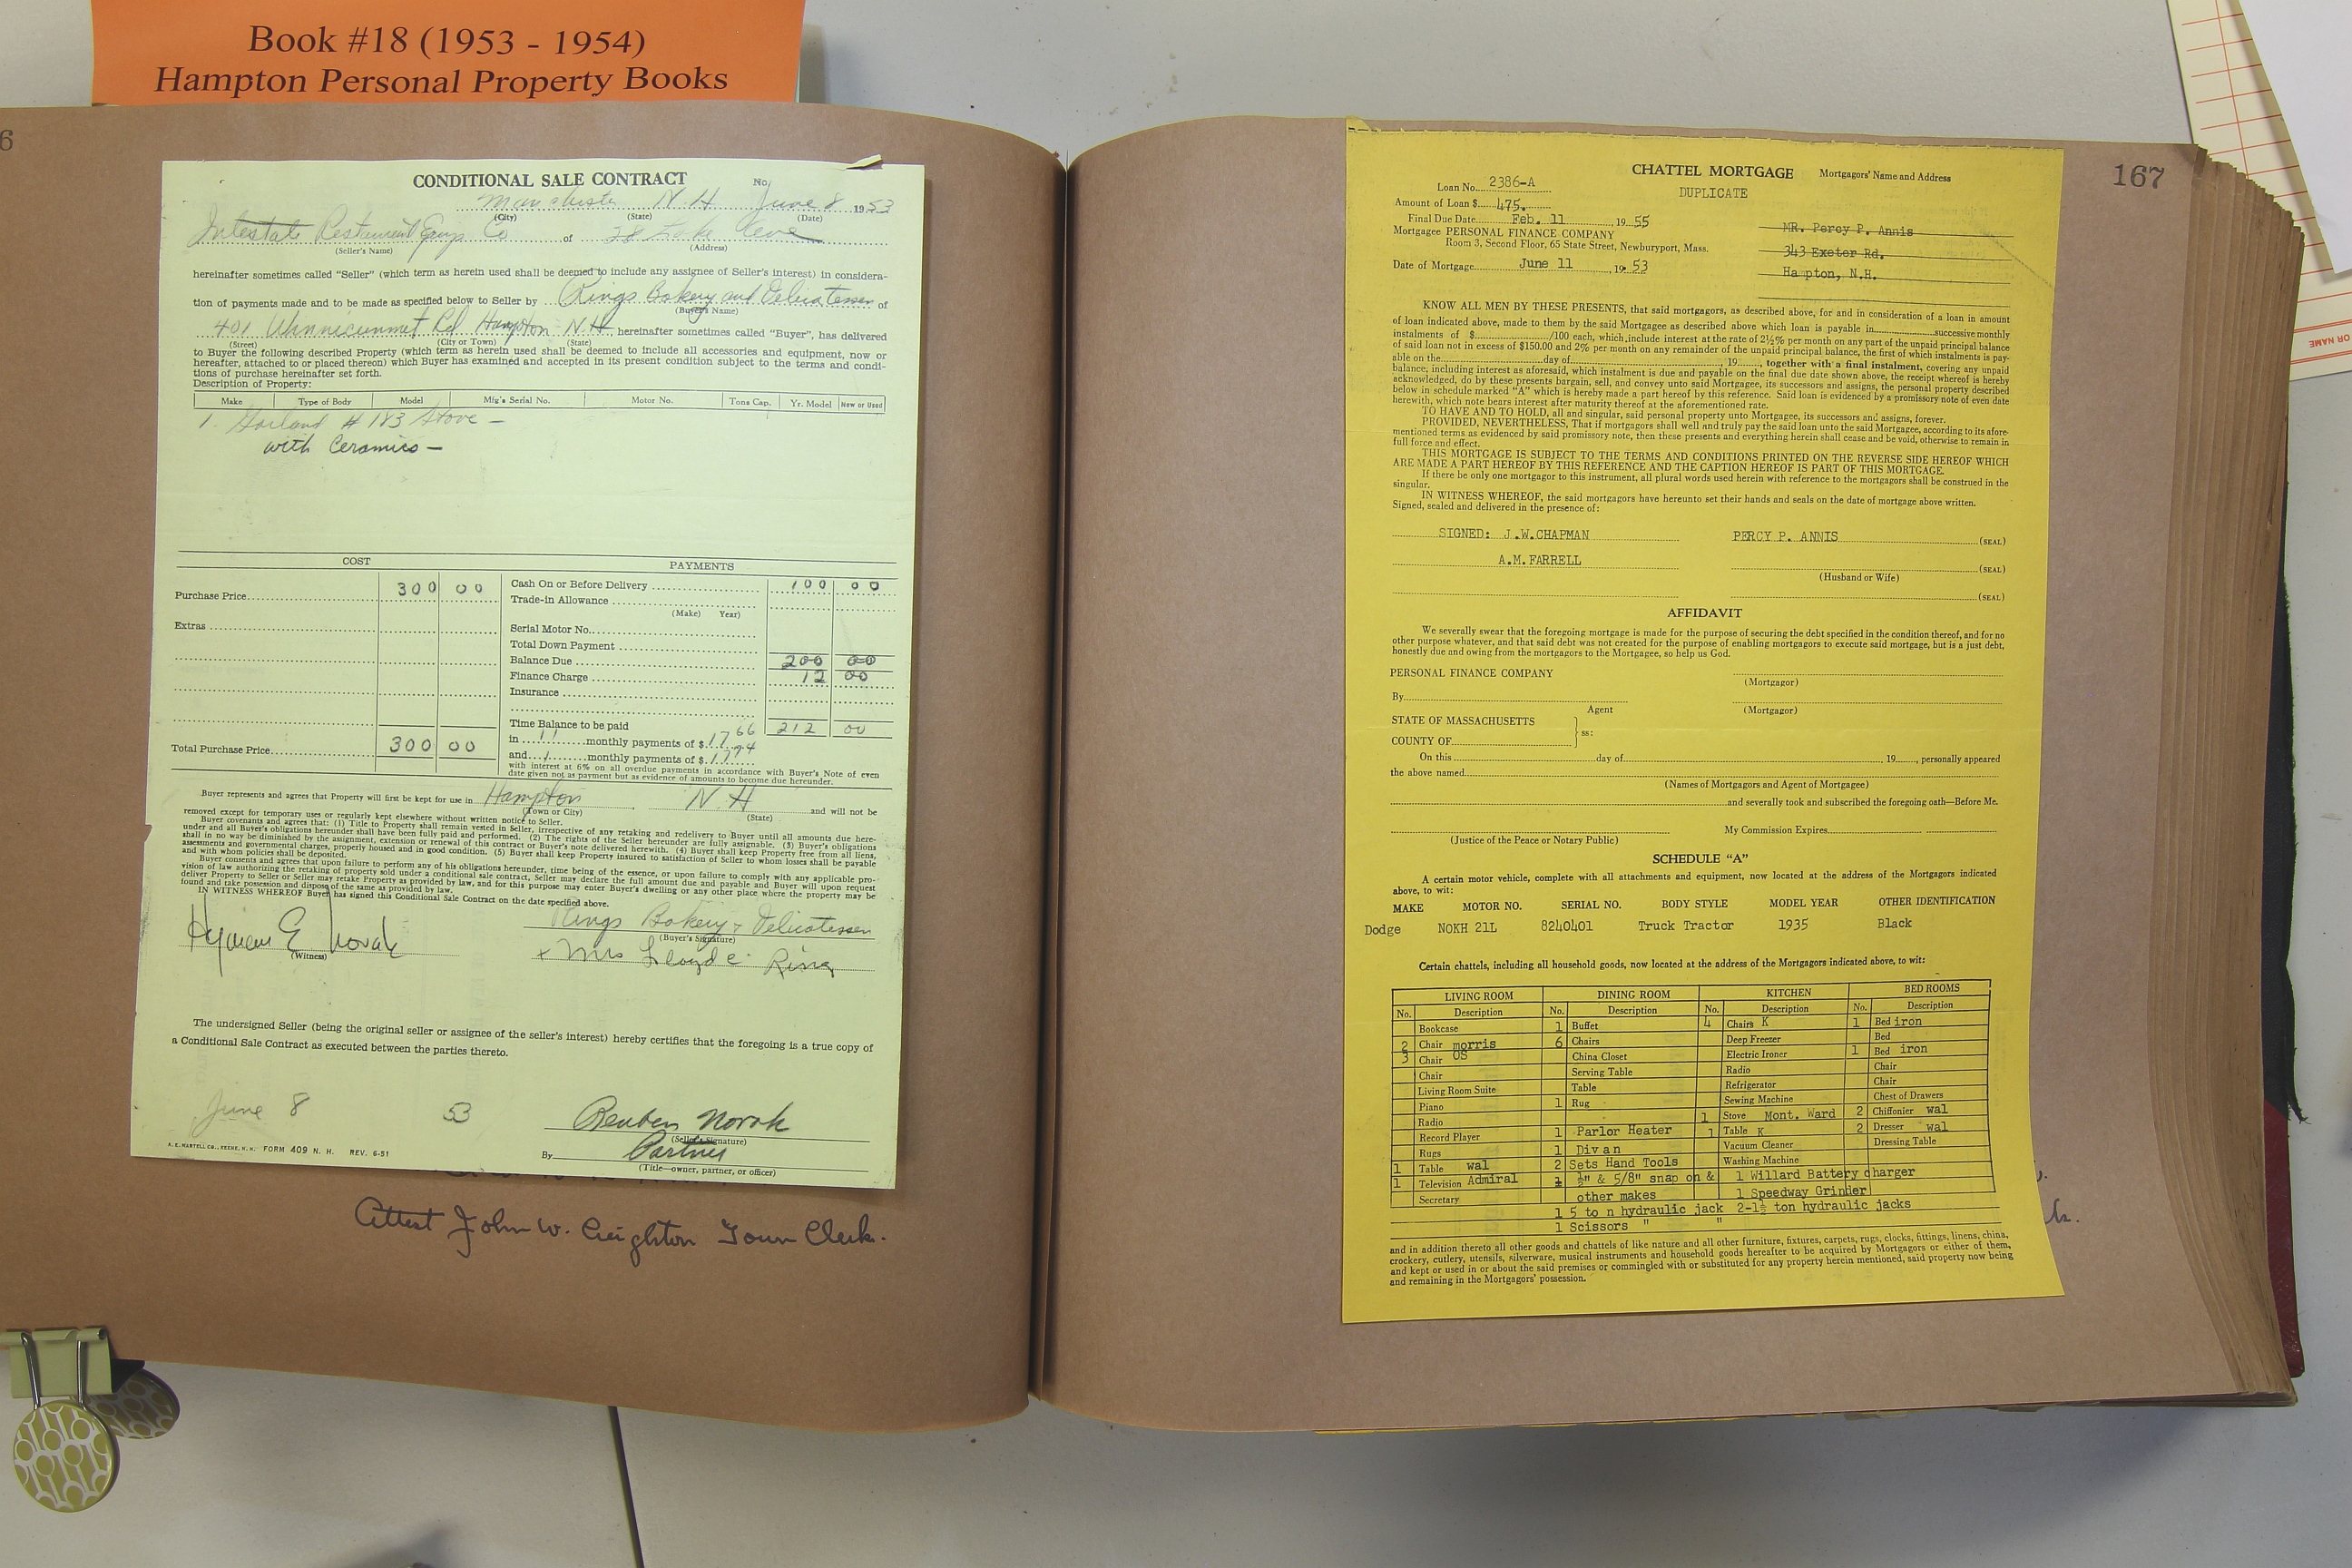 Book #18 (1953 - 1954)
Hampton Personal Property Books
6
CONDITIONAL SALE CONTRACT No.
Manchester N H June 8 1953
(City) (State) (Date)
Restaurant Equip Co of 28 Lake Ave
(Seller's Name) (Address)
hereinafter sometimes called "Seller" (which term as herein used shall be deemed to include any assignee of Seller's interest) in considera-
tion of payments made and to be made as specified below to Seller by Rings Bakery and Delicatessen of
(Buyer's Name)
401 Winnicunnet Rd Hampton N H hereinafter sometimes called "Buyer", has delivered
(Street) (City or Town) (State)
to Buyer the following described Property (which term as herein used shall be deemed to include all accessories and equipment, now or
hereafter, attached to or placed thereon) which Buyer has examined and accepted in its present condition subject to the terms and condi-
tions of purchase hereinafter set forth.
Description of Property:
Make Type of Body Model Mfg's Serial No. Motor No. Tons Cap. Yr. Model New or Used
1 Garland # 183 Stove -
with Ceramics -
COST PAYMENTS
Purchase Price 300 00 Cash On or Before Delivery 100 00
Trade-in Allowance
(Make) Year)
Extras Serial Motor No.
Total Down Payment
Balance Due 200 00
Finance Charge 12 00
Insurance
Time Balance to be paid 212 00
in 11 monthly payments of $ 17 66
Total Purchase Price 300 00 and 1 monthly payments of $ 17 74
with interest at 6% on all overdue payments in accordance with Buyer's Note of even
date given not as payment but as evidence of amounts to become due hereunder.
Buyer represents and agrees that Property will first be kept for use in Hampton N H and will not be
(Town or City) (State)
removed except for temporary uses or regularly kept elsewhere without written notice to Seller.
Buyer covenants and agrees that: (1) Title to Property shall remain vested in Seller, irrespective of any retaking and redelivery to Buyer until all amounts due here-
under and all Buyer's obligations hereunder shall have been fully paid and performed. (2) The rights of the Seller hereunder are fully assignable. (3) Buyer's obligations
shall in no way be diminished by the assignment, extension or renewal of this contract or Buyer's note delivered herewith. (4) Buyer shall keep Property free from all liens,
assessments and governmental charges, properly housed and in good condition. (5) Buyer shall keep Property insured to satisfaction of Seller to whom losses shall be payable
and with whom policies shall be deposited.
Buyer consents and agrees that upon failure to perform any of his obligations hereunder, time being of the essence, or upon failure to comply with any applicable pro-
vision of law authorizing the retaking of property sold under a conditional sale contract, Seller may declare the full amount due and payable and Buyer will upon request
deliver Property to Seller or Seller may retake Property as provided by law, and for this purpose may enter Buyer's dwelling or any other place where the property may be
found and take possession and dispose of the same as provided by law.
IN WITNESS WHEREOF Buyer has signed this Conditional Sale Contract on the date specified above.
Rings Bakery & Delicatessen
Hyman E Novak (Buyer's Signature)
(Witness) x Mrs Lloyd C. Ring
The undersigned Seller (being the original seller or assignee of the seller's interest) hereby certifies that the foregoing is a true copy of
a Conditional Sale Contract as executed between the parties thereto.
June 8 53 Reuben Novak
(Seller's Signature)
By Partner
(Title—owner, partner, or officer)
FORM 409 N. H. REV. 6-51
Attest John W. Creighton Town Clerk.
167
CHATTEL MORTGAGE Mortgagors' Name and Address
DUPLICATE
Loan No. 2386-A
Amount of Loan $ 475.
Final Due Date Feb. 11, 19 55
Mortgagee PERSONAL FINANCE COMPANY
Room 3, Second Floor, 65 State Street, Newburyport, Mass.
Date of Mortgage June 11, 19 53
MR. Percy P. Annis
343 Exeter Rd.
Hampton, N.H.
KNOW ALL MEN BY THESE PRESENTS, that said mortgagors, as described above, for and in consideration of a loan in amount
of loan indicated above, made to them by the said Mortgagee as described above which loan is payable in successive monthly
instalments of $ /100 each, which include interest at the rate of 2½% per month on any part of the unpaid principal balance
of said loan not in excess of $150.00 and 2% per month on any remainder of the unpaid principal balance, the first of which instalments is pay-
able on the day of , 19 , together with a final instalment, covering any unpaid
balance, including interest as aforesaid, which instalment is due and payable on the final due date shown above, the receipt whereof is hereby
acknowledged, do by these presents bargain, sell, and convey unto said Mortgagee, its successors and assigns, the personal property described
below in schedule marked "A" which is hereby made a part hereof by this reference. Said loan is evidenced by a promissory note of even date
herewith, which note bears interest after maturity thereof at the aforementioned rate.
TO HAVE AND TO HOLD, all and singular, said personal property unto Mortgagee, its successors and assigns, forever.
PROVIDED, NEVERTHELESS, That if mortgagors shall well and truly pay the said loan unto the said Mortgagee, according to its afore-
mentioned terms as evidenced by said promissory note, then these presents and everything herein shall cease and be void, otherwise to remain in
full force and effect.
THIS MORTGAGE IS SUBJECT TO THE TERMS AND CONDITIONS PRINTED ON THE REVERSE SIDE HEREOF WHICH
ARE MADE A PART HEREOF BY THIS REFERENCE AND THE CAPTION HEREOF IS PART OF THIS MORTGAGE.
If there be only one mortgagor to this instrument, all plural words used herein with reference to the mortgagors shall be construed in the
singular.
IN WITNESS WHEREOF, the said mortgagors have hereunto set their hands and seals on the date of mortgage above written.
Signed, sealed and delivered in the presence of:
SIGNED: J.W.CHAPMAN PERCY P. ANNIS (SEAL)
A.M.FARRELL (SEAL)
(Husband or Wife)
(SEAL)
AFFIDAVIT
We severally swear that the foregoing mortgage is made for the purpose of securing the debt specified in the condition thereof, and for no
other purpose whatever, and that said debt was not created for the purpose of enabling mortgagors to execute said mortgage, but is a just debt,
honestly due and owing from the mortgagors to the Mortgagee, so help us God.
PERSONAL FINANCE COMPANY
(Mortgagor)
By
Agent (Mortgagor)
STATE OF MASSACHUSETTS
ss:
COUNTY OF
On this day of , 19 , personally appeared
the above named
(Names of Mortgagors and Agent of Mortgagee)
and severally took and subscribed the foregoing oath—Before Me.
My Commission Expires
(Justice of the Peace or Notary Public)
SCHEDULE "A"
A certain motor vehicle, complete with all attachments and equipment, now located at the address of the Mortgagors indicated
above, to wit:
MAKE MOTOR NO. SERIAL NO. BODY STYLE MODEL YEAR OTHER IDENTIFICATION
Dodge NOKH 21L 8240401 Truck Tractor 1935 Black
Certain chattels, including all household goods, now located at the address of the Mortgagors indicated above, to wit:
LIVING ROOM DINING ROOM KITCHEN BED ROOMS
No. Description No. Description No. Description No. Description
Bookcase 1 Buffet 4 Chairs K 1 Bed iron
2 Chair morris 6 Chairs Deep Freezer Bed
3 Chair OS China Closet Electric Ironer 1 Bed iron
Chair Serving Table Radio Chair
Living Room Suite Table Refrigerator Chair
Piano 1 Rug Sewing Machine Chest of Drawers
Radio 1 Stove Mont. Ward 2 Chiffonier wal
Record Player 1 Parlor Heater 1 Table K 2 Dresser wal
Rugs 1 Divan Vacuum Cleaner Dressing Table
1 Table wal 2 Sets Hand Tools Washing Machine
1 Television Admiral ½" & 5/8" snap on & 1 Willard Battery charger
Secretary other makes 1 Speedway Grinder
1 5 to n hydraulic jack 2-1½ ton hydraulic jacks
1 Scissors " "
and in addition thereto all other goods and chattels of like nature and all other furniture, fixtures, carpets, rugs, clocks, fittings, linens, china,
crockery, cutlery, utensils, silverware, musical instruments and household goods hereafter to be acquired by Mortgagors or either of them,
and kept or used in or about the said premises or commingled with or substituted for any property herein mentioned, said property now being
and remaining in the Mortgagors' possession.
OR NAME